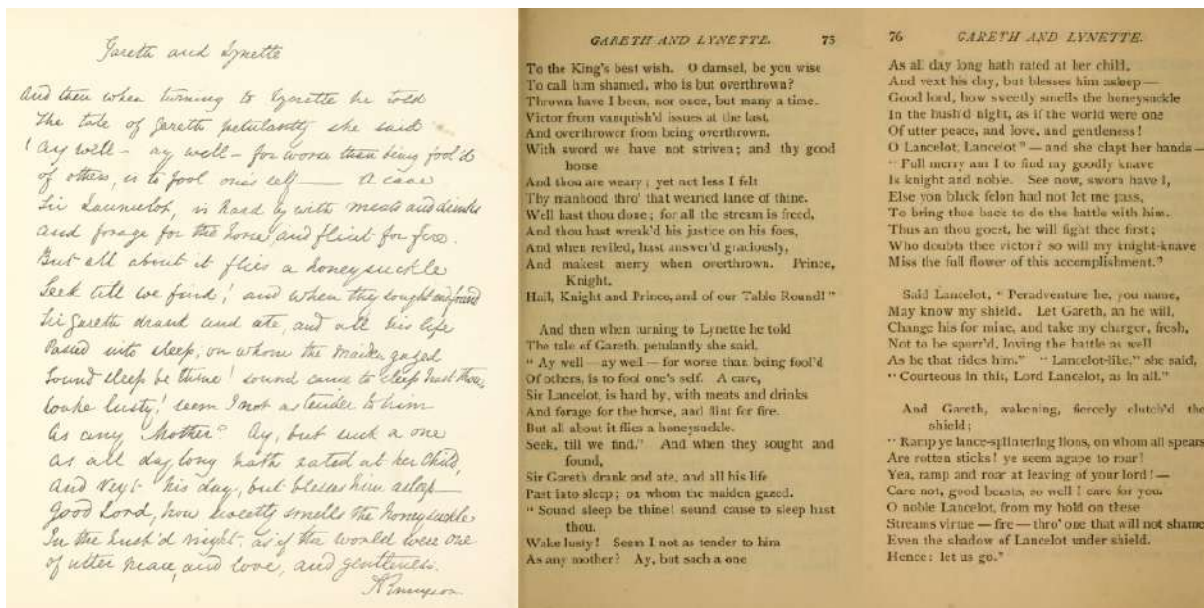 Gareth and Lynette
And then when turning to Lynette he told
The tale of Gareth petulantly she said
'Ay well — ay well — for worse than being fool'd
of others, is to fool one's self — A cave
Sir Launcelot, is hard by with meats and drinks
and forage for the horse, and flint for fire.
But all about it flies a honeysuckle
Seek till we find,' and when they sought and found
Sir Gareth drank and ate, and all his life
Passed into sleep, on whom the maiden gazed
Sound sleep be thine! sound cause to sleep hast thou,
Wake lusty! seem I not as tender to him
As any Mother? Ay, but such a one
As all day long hath rated at her Child,
And vext his day, but blesses him asleep—
Good Lord, how sweetly smells the honeysuckle
In the hush'd night, as if the world were one
Of utter peace, and love, and gentleness.
A Tennyson.
GARETH AND LYNETTE. 75
To the King's best wish. O damsel, be you wise
To call him shamed, who is but overthrown?
Thrown have I been, nor once, but many a time.
Victor from vanquish'd issues at the last,
And overthrower from being overthrown.
With sword we have not striven; and thy good
horse
And thou are weary; yet not less I felt
Thy manhood thro' that wearied lance of thine.
Well hast thou done; for all the stream is freed,
And thou hast wreak'd his justice on his foes,
And when reviled, hast answer'd graciously,
And makest merry when overthrown. Prince,
Knight,
Hail, Knight and Prince, and of our Table Round!"
And then when turning to Lynette he told
The tale of Gareth, petulantly she said,
"Ay well — ay well — for worse than being fool'd
Of others, is to fool one's self. A cave,
Sir Lancelot, is hard by, with meats and drinks
And forage for the horse, and flint for fire.
But all about it flies a honeysuckle.
Seek, till we find." And when they sought and
found,
Sir Gareth drank and ate, and all his life
Past into sleep; on whom the maiden gazed.
"Sound sleep be thine! sound cause to sleep hast
thou.
Wake lusty! Seem I not as tender to him
As any mother? Ay, but such a one
76 GARETH AND LYNETTE.
As all day long hath rated at her child,
And vext his day, but blesses him asleep —
Good lord, how sweetly smells the honeysuckle
In the hush'd night, as if the world were one
Of utter peace, and love, and gentleness!
O Lancelot, Lancelot" — and she clapt her hands —
"Full merry am I to find my goodly knave
Is knight and noble. See now, sworn have I,
Else yon black felon had not let me pass,
To bring thee back to do the battle with him.
Thus an thou goest, he will fight thee first;
Who doubts thee victor? so will my knight-knave
Miss the full flower of this accomplishment."
Said Lancelot, "Peradventure he, you name,
May know my shield. Let Gareth, an he will,
Change his for mine, and take my charger, fresh,
Not to be spurr'd, loving the battle as well
As he that rides him." "Lancelot-like," she said,
"Courteous in this, Lord Lancelot, as in all."
And Gareth, wakening, fiercely clutch'd the
shield;
"Ramp ye lance-splintering lions, on whom all spears
Are rotten sticks! ye seem agape to roar!
Yea, ramp and roar at leaving of your lord! —
Care not, good beasts, so well I care for you.
O noble Lancelot, from my hold on these
Streams virtue — fire — thro' one that will not shame
Even the shadow of Lancelot under shield.
Hence: let us go."